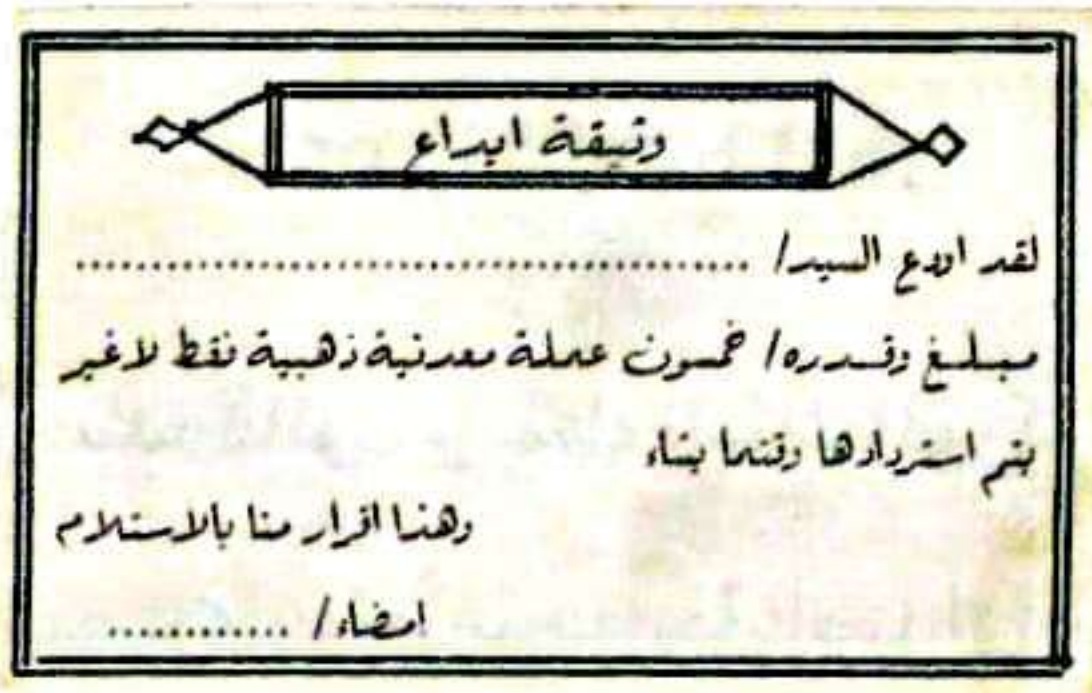 وثيقة ايداع
لقد اودع السيد/ ................................................
مبلغ وقدره/ خمسون عملة معدنية ذهبية فقط لاغير
يتم استردادها وقتما يشاء
وهذا اقرار منا بالاستلام
امضاء/ ............